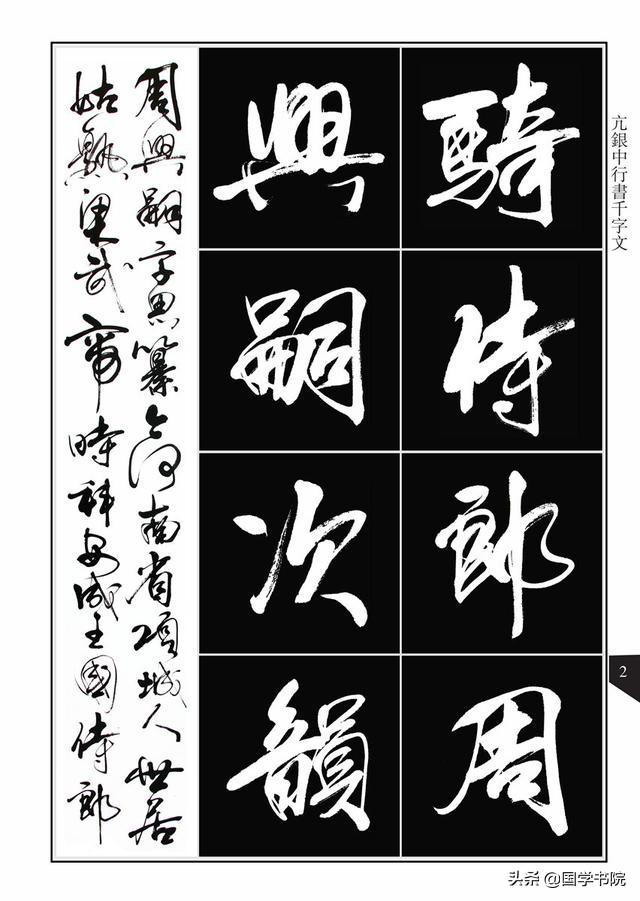 亢銀中行書千字文
騎侍郎周
興嗣次韻
周興嗣字思纂今河南省項城人世居
姑孰梁武帝時拜安成王國侍郎
2
头条 @国学书院